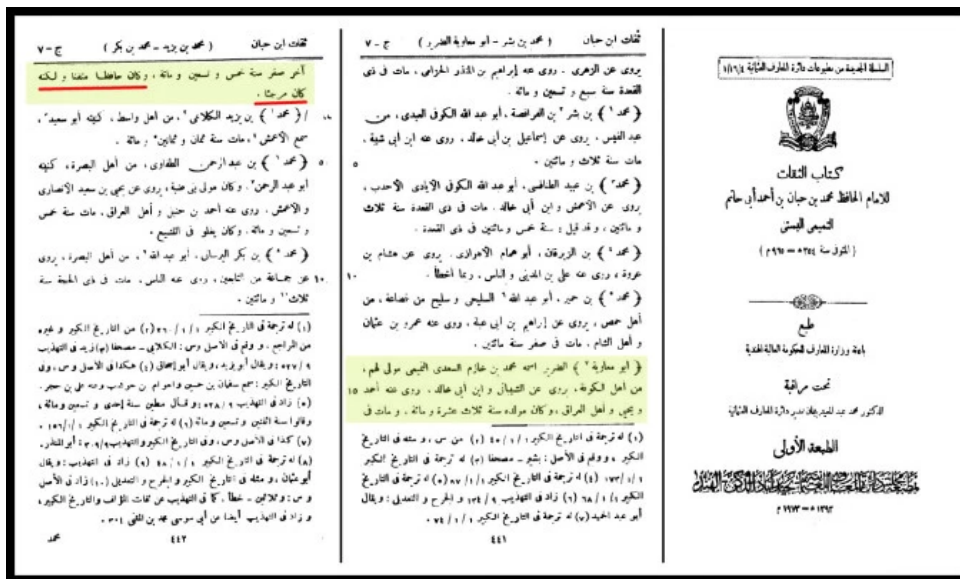 السلسلة الجديدة من مطبوعات دائرة المعارف العثمانية ١/١٦/٤
كتاب الثقات
للامام الحافظ محمد بن حبان بن أحمد أبى حاتم
التميمى البستى
( المتوفى سنة ٣٥٤ ه = ٩٦٥ م )
طبع
باعانة وزارة المعارف للحكومة العالية الهندية
تحت مراقبة
الدكتور محمد عبد المعيد خان مدير دائرة المعارف العثمانية
الطبعة الأولى
١٣٩٣ ه = ١٩٧٣ م
ثقات ابن حبان ( محمد بن بشر – ابو معاوية الضرير ) ج – ٧
يروى عن الزهرى . روى عنه إبراهيم بن المنذر الحزامى ، مات فى ذى
القعدة سنة سبع و تسعين و مائة .
( محمد ١ ) بن بشر ٢ بن الفرافصة ، أبو عبد الله الكوفى العبدى ، من
عبد القيس . يروى عن إسماعيل بن أبى خالد . روى عنه ابن أبى شيبة ،
مات سنة ثلاث و مائتين . ٥
( محمد ٣ ) بن عبيد الطنافسى . أبو عبد الله الكوفى الايادى الاحدب ،
يروى عن الأعمش و ابن أبى خالد . مات فى ذى القعدة سنة ثلاث
و مائتين ، و قد قيل : سنة خمس ومائتين فى ذى القعدة .
( محمد ٤ ) بن الزبرقان ، أبو همام الاهوازى . يروى عن هشام بن
عروة ، روى عنه على بن المدينى و الناس ، ربما أخطأ . ١٠
( محمد ٥ ) بن حمير . أبو عبد الله ٦ السليحى و سليح من قضاعة ، من
أهل حمص ، يروى عن إبراهيم بن ابى عبلة . روى عنه عمرو بن عثمان
و أهل الشام . مات فى صفر سنة مائتين .
( ابو معاوية ٧ ) الضرير اسمه محمد بن خازم السعدى التميمى مولى لهم ،
من أهل الكوفة ، يروى عن الشيبانى و ابن أبى خالد . روى عنه أحمد ١٥
و يحيى و أهل العراق ، وكان مولده سنة ثلاث عشرة و مائة . و مات فى
(١) له ترجمة فى التاريخ الكبير ١ / ١ / ٤٥ (٢) من س ، و مثله فى التاريخ
الكبير ، و وقع فى الأصل : بشير – مصحفا (٣) له ترجمة فى التاريخ الكبير
١ / ١ / ١٧٣ (٤) له ترجمة فى التاريخ الكبير ١ / ١ / ٨٧ (٥) له ترجمة فى التاريخ
الكبير ١ / ١ / ٦٨ (٦) زاد فى التهذيب ٩ / ١٣٤ و الجرح و التعديل : ويقال
أبو عبد الحميد (٧) له ترجمة فى التاريخ الكبير ١ / ١ / ٧٤ .
٤٤١
ثقات ابن حبان ( محمد بن يزيد – محمد بن بكر ) ج – ٧
آخر صفر سنة خمس و تسعين و مائة ، وكان حافظا متقنا و لكنه
كان مرجئا .
/ ( محمد ١ ) بن يزيد الكلاعى ٢ ، من اهل واسط ، كنيته أبو سعيد ٣ ،
سمع الاعمش ٤ ، مات سنة ثمان و ثمانين ٥ و مائة .
( محمد ٦ ) بن عبد الرحمن الطفاوى ، من أهل البصرة ، كنيته ٥
ابو عبد الرحمن ٧ . وكان مولى بنى ضبة ، يروى عن يحيى بن سعيد الانصارى
و الاعمش . روى عنه أحمد بن حنبل و أهل العراق . مات سنة خمس
و تسعين و مائة . وكان يغلو فى التشيع .
( محمد ٨ ) بن بكر البرسانى . أبو عبد الله ٩ ، من أهل البصرة ، يروى
عن جماعة من التابعين ، روى عنه الناس . مات فى ذى الحجة سنة ١٠
ثلاث ١٠ و مائتين .
(١) له ترجمة فى التاريخ الكبير ١ / ١ / ٢٦٠ (٢) من التاريخ الكبير و غيره
من المراجع . و وقع فى الاصل وس : الكلابى – مصحفا (٣) زيد فى التهذيب
٩ / ٥٢٧ : ويقال أبو يزيد ، ويقال أبو إسحاق (٤) هكذا فى الاصل و س ، وفى
التاريخ الكبير : سمع سفيان بن حسين والعوام بن حوشب وعنه على بن حجر .
(٥) زاد فى التهذيب ٩ / ٥٢٨ : وقال مطين سنة إحدى و تسعين ومائة ،
وقالوا سنة اثنتين و تسعين ومائة (٦) له ترجمة فى التاريخ الكبير ١ / ١ / ١٥٦ .
(٧) كذا فى الاصل وس ، وفى التاريخ الكبير و التهذيب ٩ / ٣٠٩ : أبو المنذر .
(٨) له ترجمة فى التاريخ الكبير ١ / ١ / ٤٨ (٩) زاد فى التهذيب : ويقال
أبو عثمان ، و مثله فى التاريخ الكبير و الجرح و التعديل (١٠) زاد فى الأصل
و س : وثلاثين – خطأ . كما فى التهذيب عن ثقات المؤلف والتاريخ الكبير ،
و زاد فى التهذيب أيضا عن أبى موسى محمد بن المثنى ٣٠٤ .
٤٤٢
محمد